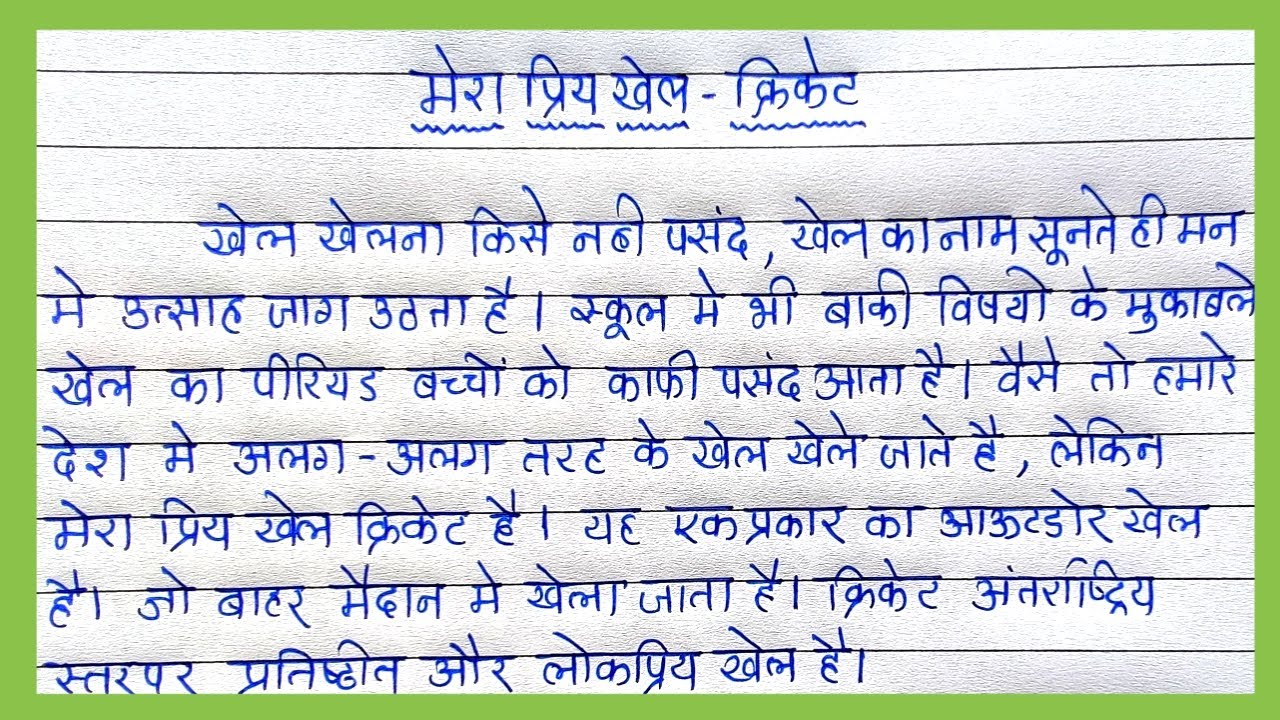 मेरा प्रिय खेल - क्रिकेट
खेल खेलना किसे नही पसंद, खेल का नाम सूनते ही मन
मे उत्साह जाग उठता है। स्कूल मे भी बाकी विषयो के मुकाबले
खेल का पीरियड बच्चों को काफी पसंद आता है। वैसे तो हमारे
देश मे अलग - अलग तरह के खेल खेले जाते है, लेकिन
मेरा प्रिय खेल क्रिकेट है। यह एक प्रकार का आऊटडोर खेल
है। जो बाहर मैदान मे खेला जाता है। क्रिकेट अंतर्राष्ट्रिय
स्तरपर प्रतिष्ठीत और लोकप्रिय खेल है।